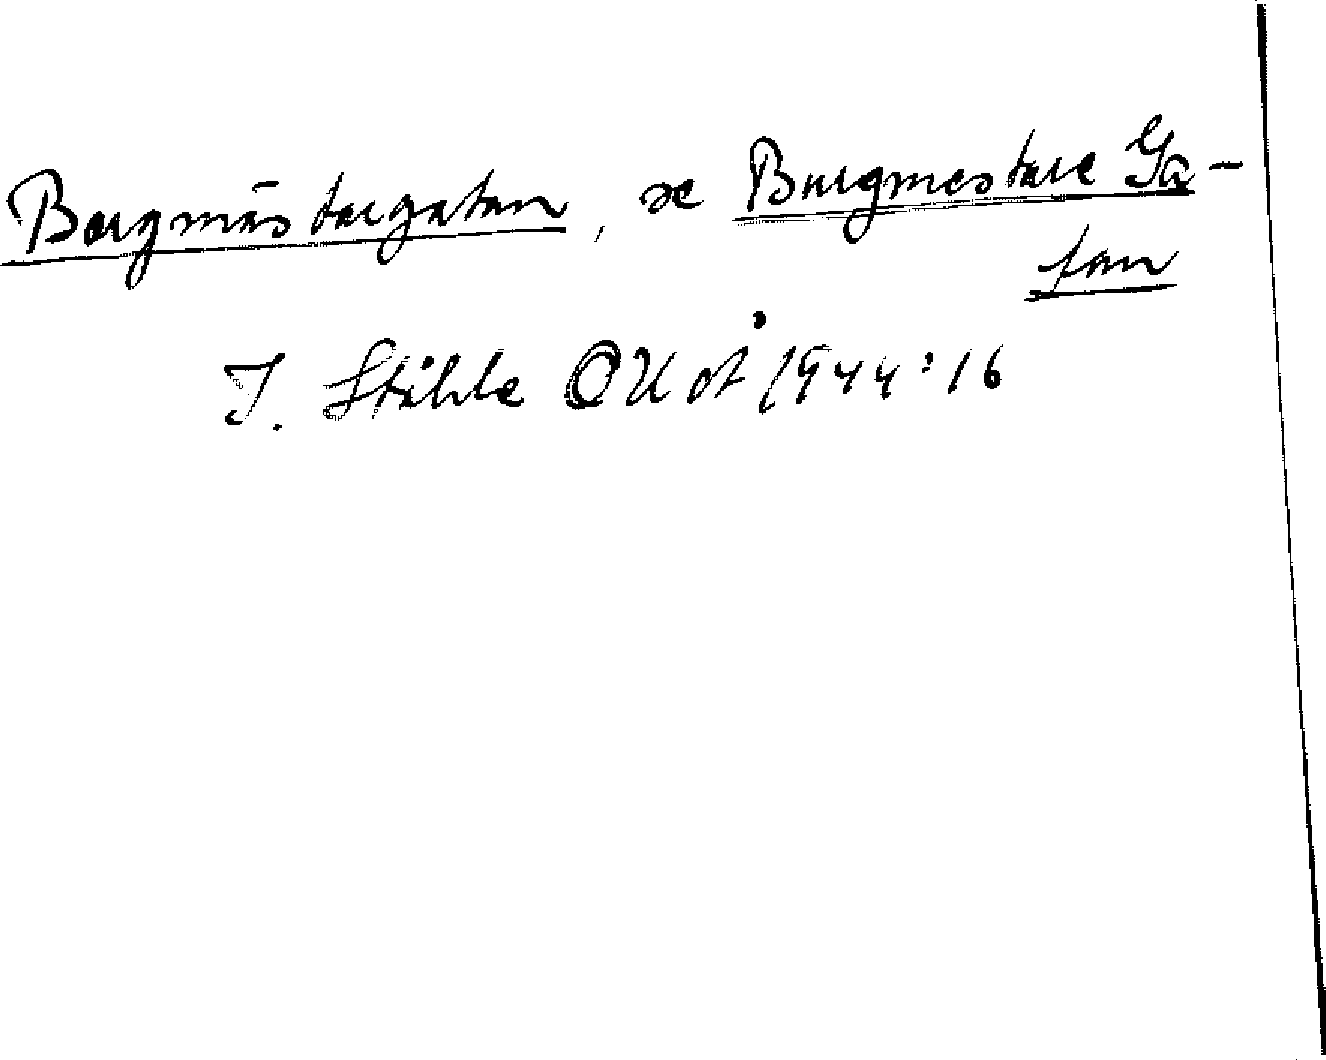 Borgmästargatan, se Burgmestare Ga-
tan
I. Ståhle OUoÅ 1944:16